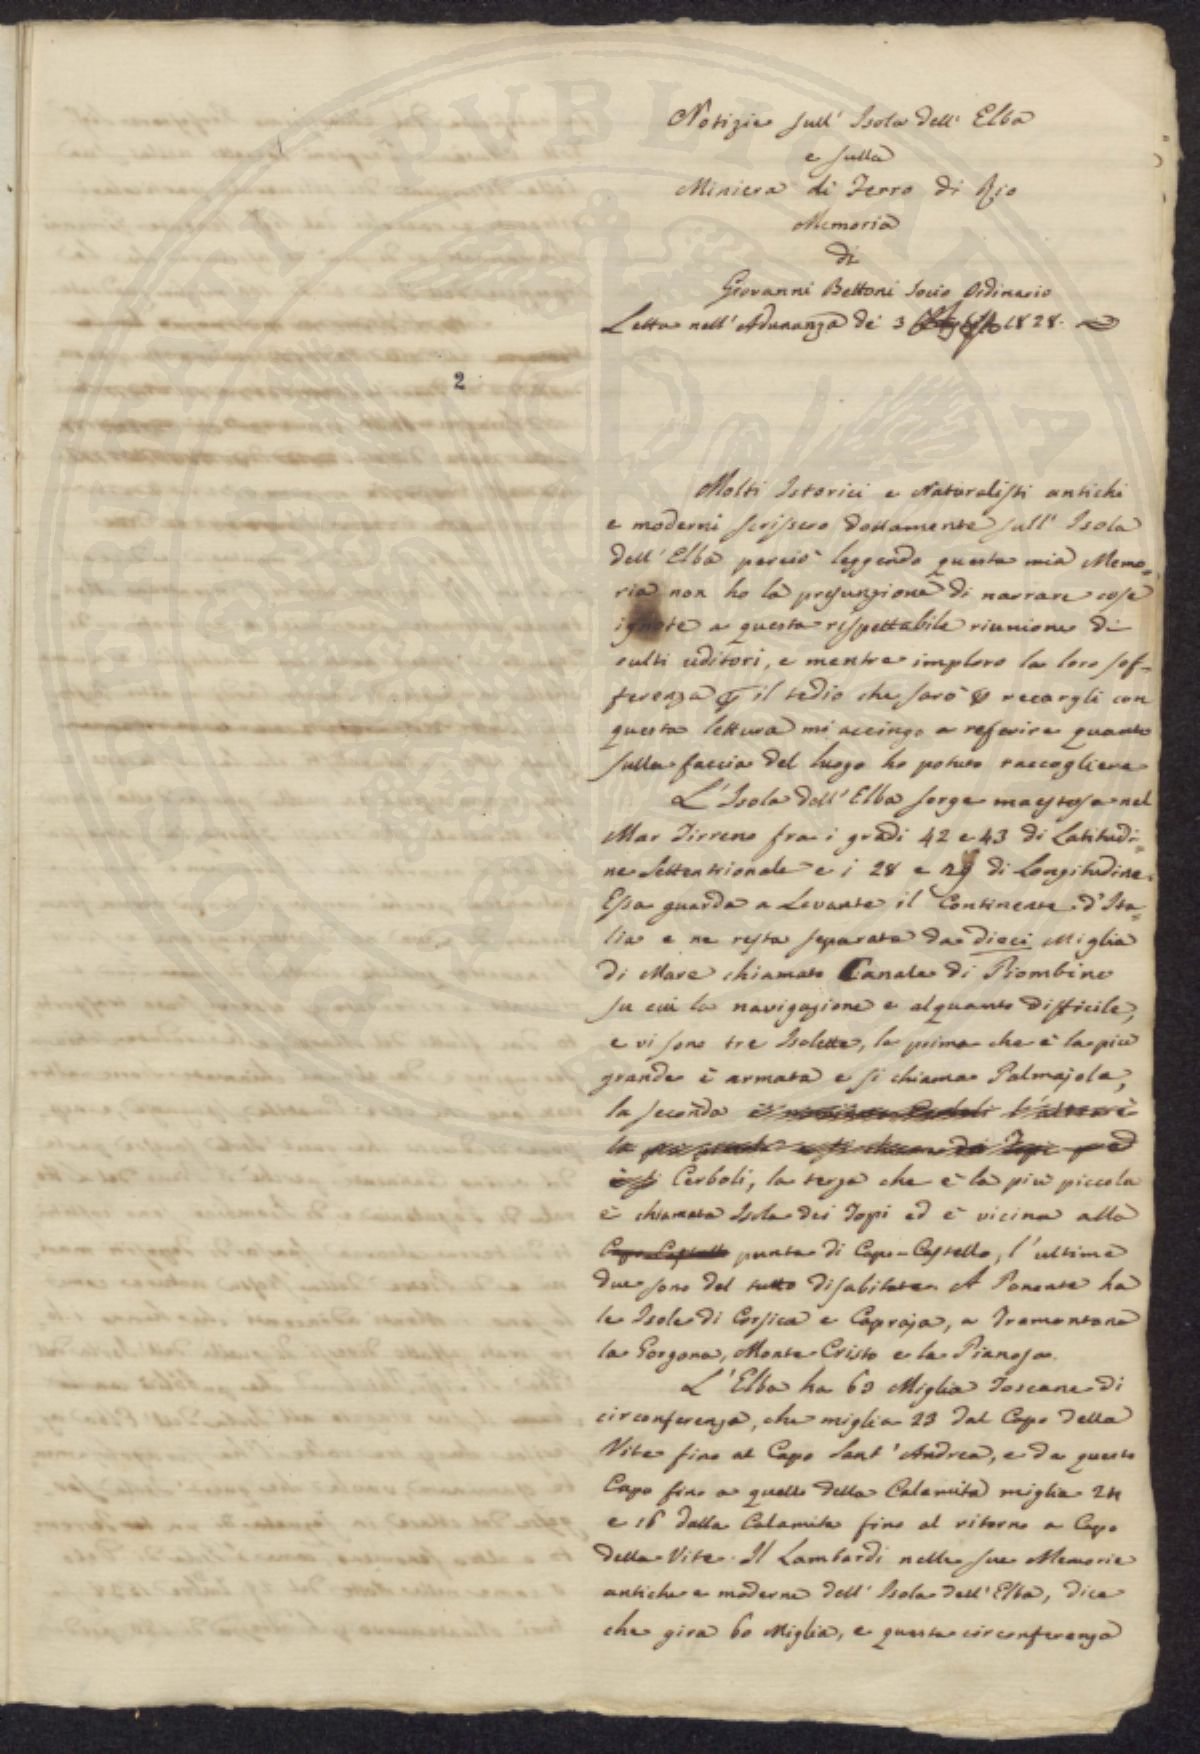 Notizie sull' Isola dell' Elba
e sulla
Miniera di Ferro di Rio
Memoria
di
Giovanni Bettoni Socio Ordinario
Letta nell' Adunanza de' 3 1828.
2
Molti Istorici e Naturalisti antichi
e moderni scrissero dottamente sull' Isola
dell' Elba perciò leggendo questa mia Memo=
ria non ho la presunzione di narrare cose
ignote a questa rispettabile riunione di
culti uditori, e mentre imploro la loro sof=
ferenza il tedio che sarò recargli con
questa lettura mi accingo a referire quanto
sulla faccia del luogo ho potuto raccogliere
L'Isola dell' Elba sorge maestosa nel
Mar Tirreno fra i gradi 42 e 43 di Latitudi=
ne Settentrionale e i 28 e 29 di Longitudine.
Essa guarda a Levante il Continente d'Ita=
lia e ne resta separata da dieci Miglia
di Mare chiamato Canale di Piombino
su cui la navigazione e alquanto difficile,
e vi sono tre Isolette, la prima che è la più
grande è armata e si chiama Palmajola,
la seconda
Cerboli, la terza che è la più piccola
è chiamata Isola dei Topi ed è vicina alla
Capo Castello punta di Capo-Castello, l'ultime
due sono del tutto disabitate. A Ponente ha
le Isole di Corsica e Capraja, a Tramontana
la Gorgona, Monte Cristo e la Pianosa.
L'Elba ha 63 Miglia Toscane di
circonferenza, che miglia 23 dal Capo della
Vite fino al Capo Sant' Andrea, e da questo
Capo fino a quello della Calamita miglia 24
e 16 dalla Calamita fino al ritorno a Capo
della Vite. Il Lambardi nelle sue Memorie
antiche e moderne dell' Isola dell' Elba, dice
che gira 60 Miglia, e questa circonferenza